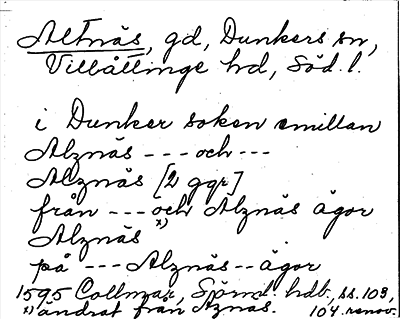 Altnäs, gd, Dunkers sn,
Villåttinge hd, Söd. l.
i Dunker soken emillan
Alznäs --- och ---
Alznäs [2 ggr]
från --- och Alznäs ägor
Alznäs x)
på --- Alznäs -- ägor
1595 Collmar, Sörml. hdb., ss. 103,
x) ändrat från Aznäs. 104. renov.